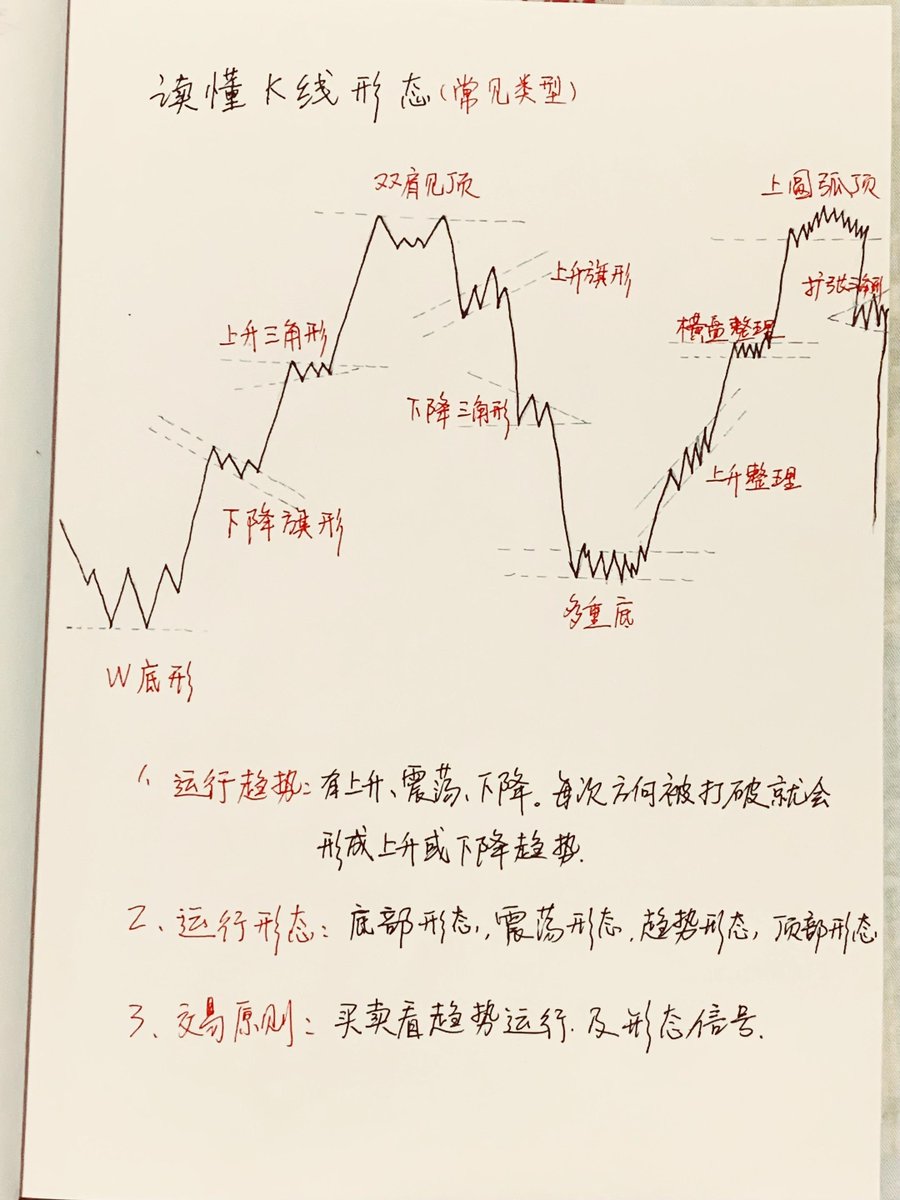 读懂K线形态(常见类型)
双肩见顶
上圆弧顶
上升旗形
扩张三角形
上升三角形
横盘整理
下降三角形
上升整理
下降旗形
多重底
W底形
1、运行趋势:有上升、震荡、下降。每次方向被打破就会
形成上升或下降趋势.
2、运行形态:底部形态,震荡形态,趋势形态,顶部形态
3、交易原则:买卖看趋势运行.及形态信号.